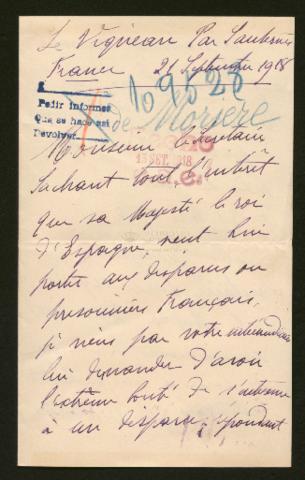 Le Vigneau Par Sauternes
France 21 Septembre 1918
109828
Pedir informes
Que se hace así
Devolver
de Morière
Monsieur le Secrétaire
SET. 1918
Sachant tout l'intérêt
que sa Majesté le roi
d'Espagne, veut bien
porter aux disparus ou
prisonniers Français,
je viens par votre intermédiaire
lui demander d'avoir
l'extrême bonté de s'intéresser
à un disparu; cependant